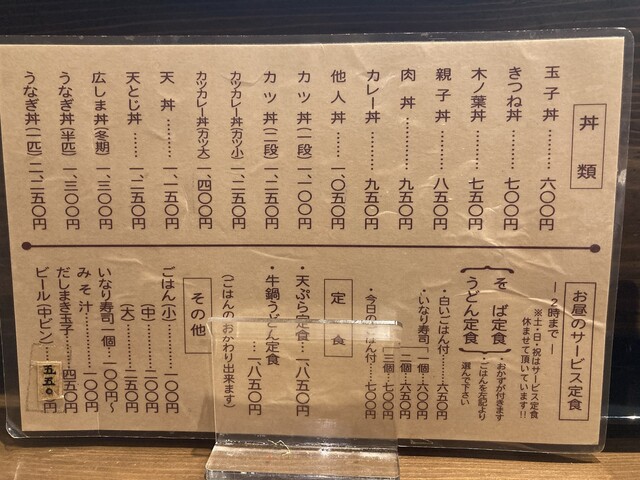 丼類
玉子丼………六〇〇円
きつね丼………七〇〇円
木ノ葉丼………七五〇円
親子丼………八五〇円
肉丼………九五〇円
カレー丼………九五〇円
他人丼……一、〇五〇円
カツ丼(一段)一、一〇〇円
カツ丼(二段)一、二五〇円
カツカレー丼(カツ小)一、二五〇円
カツカレー丼(カツ大)一、四〇〇円
天丼………一、一五〇円
天とじ丼……一、二五〇円
広しま丼(冬期)一、三〇〇円
うなぎ丼(半匹)一、三〇〇円
うなぎ丼(一匹)二、二五〇円
お昼のサービス定食
―2時まで―
※土・日・祝はサービス定食
休ませて頂いています!!
そば定食
うどん定食
・おかずが付きます
・ごはんを左記より
選んで下さい
・白いごはん付……六五〇円
・いなり寿司 一個…六〇〇円
二個…六五〇円
三個…七〇〇円
・今日のごはん付……七〇〇円
定食
・天ぷら定食…一、八五〇円
・牛鍋うどん定食
……一、八五〇円
(ごはんのおかわり出来ます)
その他
ごはん(小)………一〇〇円
(中)………二〇〇円
(大)………二五〇円
みそ汁………一〇〇円
いなり寿司一個…一〇〇円〜
だしまき玉子……四五〇円
ビール(中ビン)…五五〇円